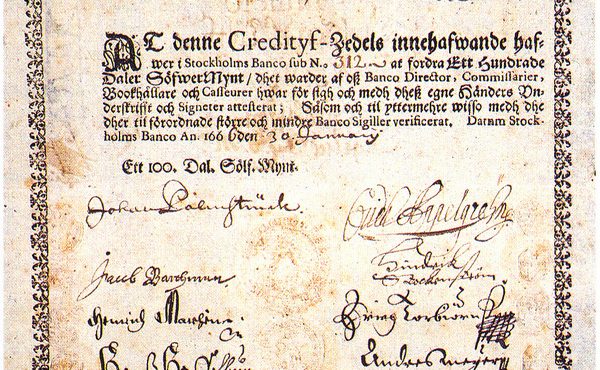 AT denne Credityf-Zedels innehafwande haf-
wer i Stockholms Banco sub N.o 312 at fordra Ett Hundrade
Daler Söfwer Mynt / dhet warder af oß Banco Director, Commissarier,
Bookhållare och Casseurer hwar för sigh och medh dheß egne Händers Vn-
derskrifft och Signeter attesterat; Såsom och til yttermehre wisso medh dhe
dher til förordnade större och mindre Banco Sigiller verificerat. Datum Stock-
holms Banco An. 166 6 den 30 January
Ett 100. Dal. Sölf. Mynt.
Johan Palmstruck
Jacob
Hindrick
Heinrich
Andres Meyer